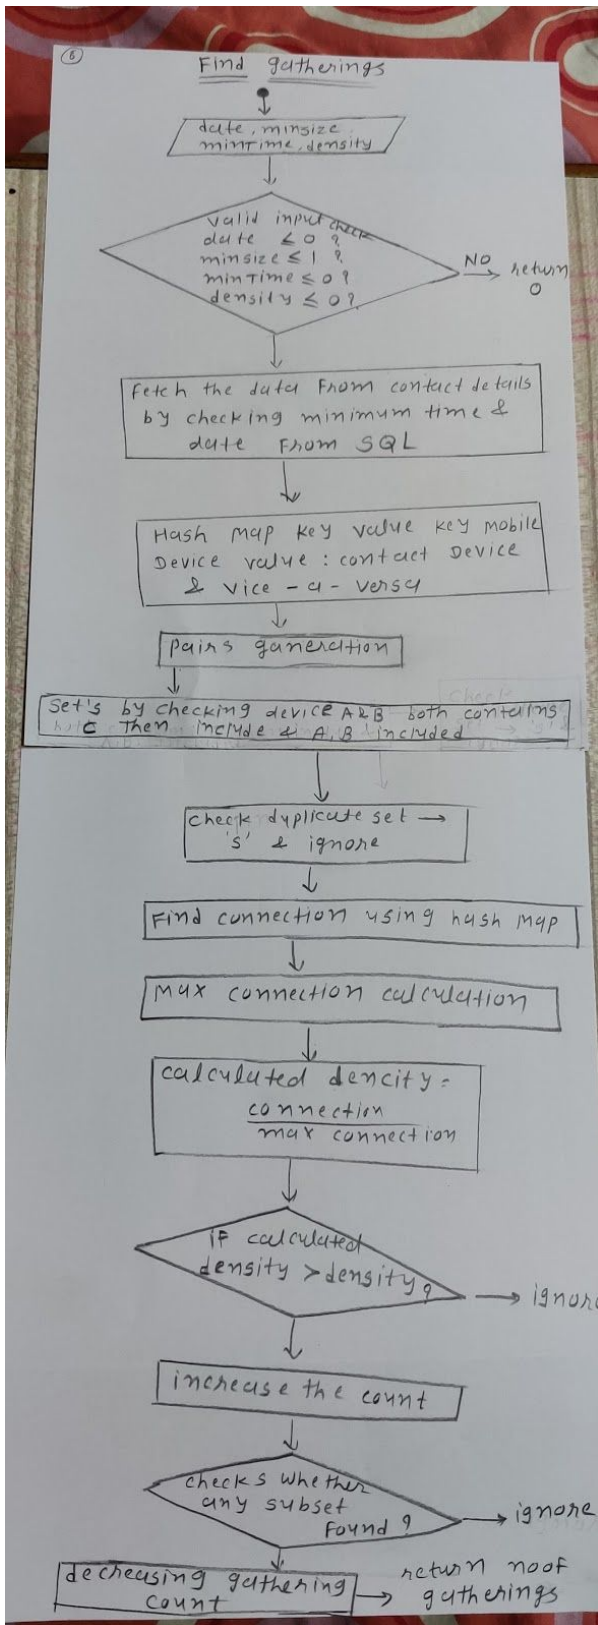 6
Find gatherings
date, minsize
minTime, density
valid input check
date ≤ 0 ?
minsize ≤ 1 ?
minTime ≤ 0 ?
density ≤ 0 ?
NO
return
0
Fetch the data From contact details
by checking minimum time &
date From SQL
Hash map key value key mobile
Device value : contact Device
& vice - a - versa
pairs ganeration
set's by checking device A&B both contains
C then include & A,B included
check duplicate set →
's' & ignore
Find connection using hash map
max connection calculation
calculated dencity =
connection
max connection
if calculated
density > density ?
ignore
increase the count
checks whether
any subset
Found ?
ignore
decreasing gathering
count
return noof
gatherings